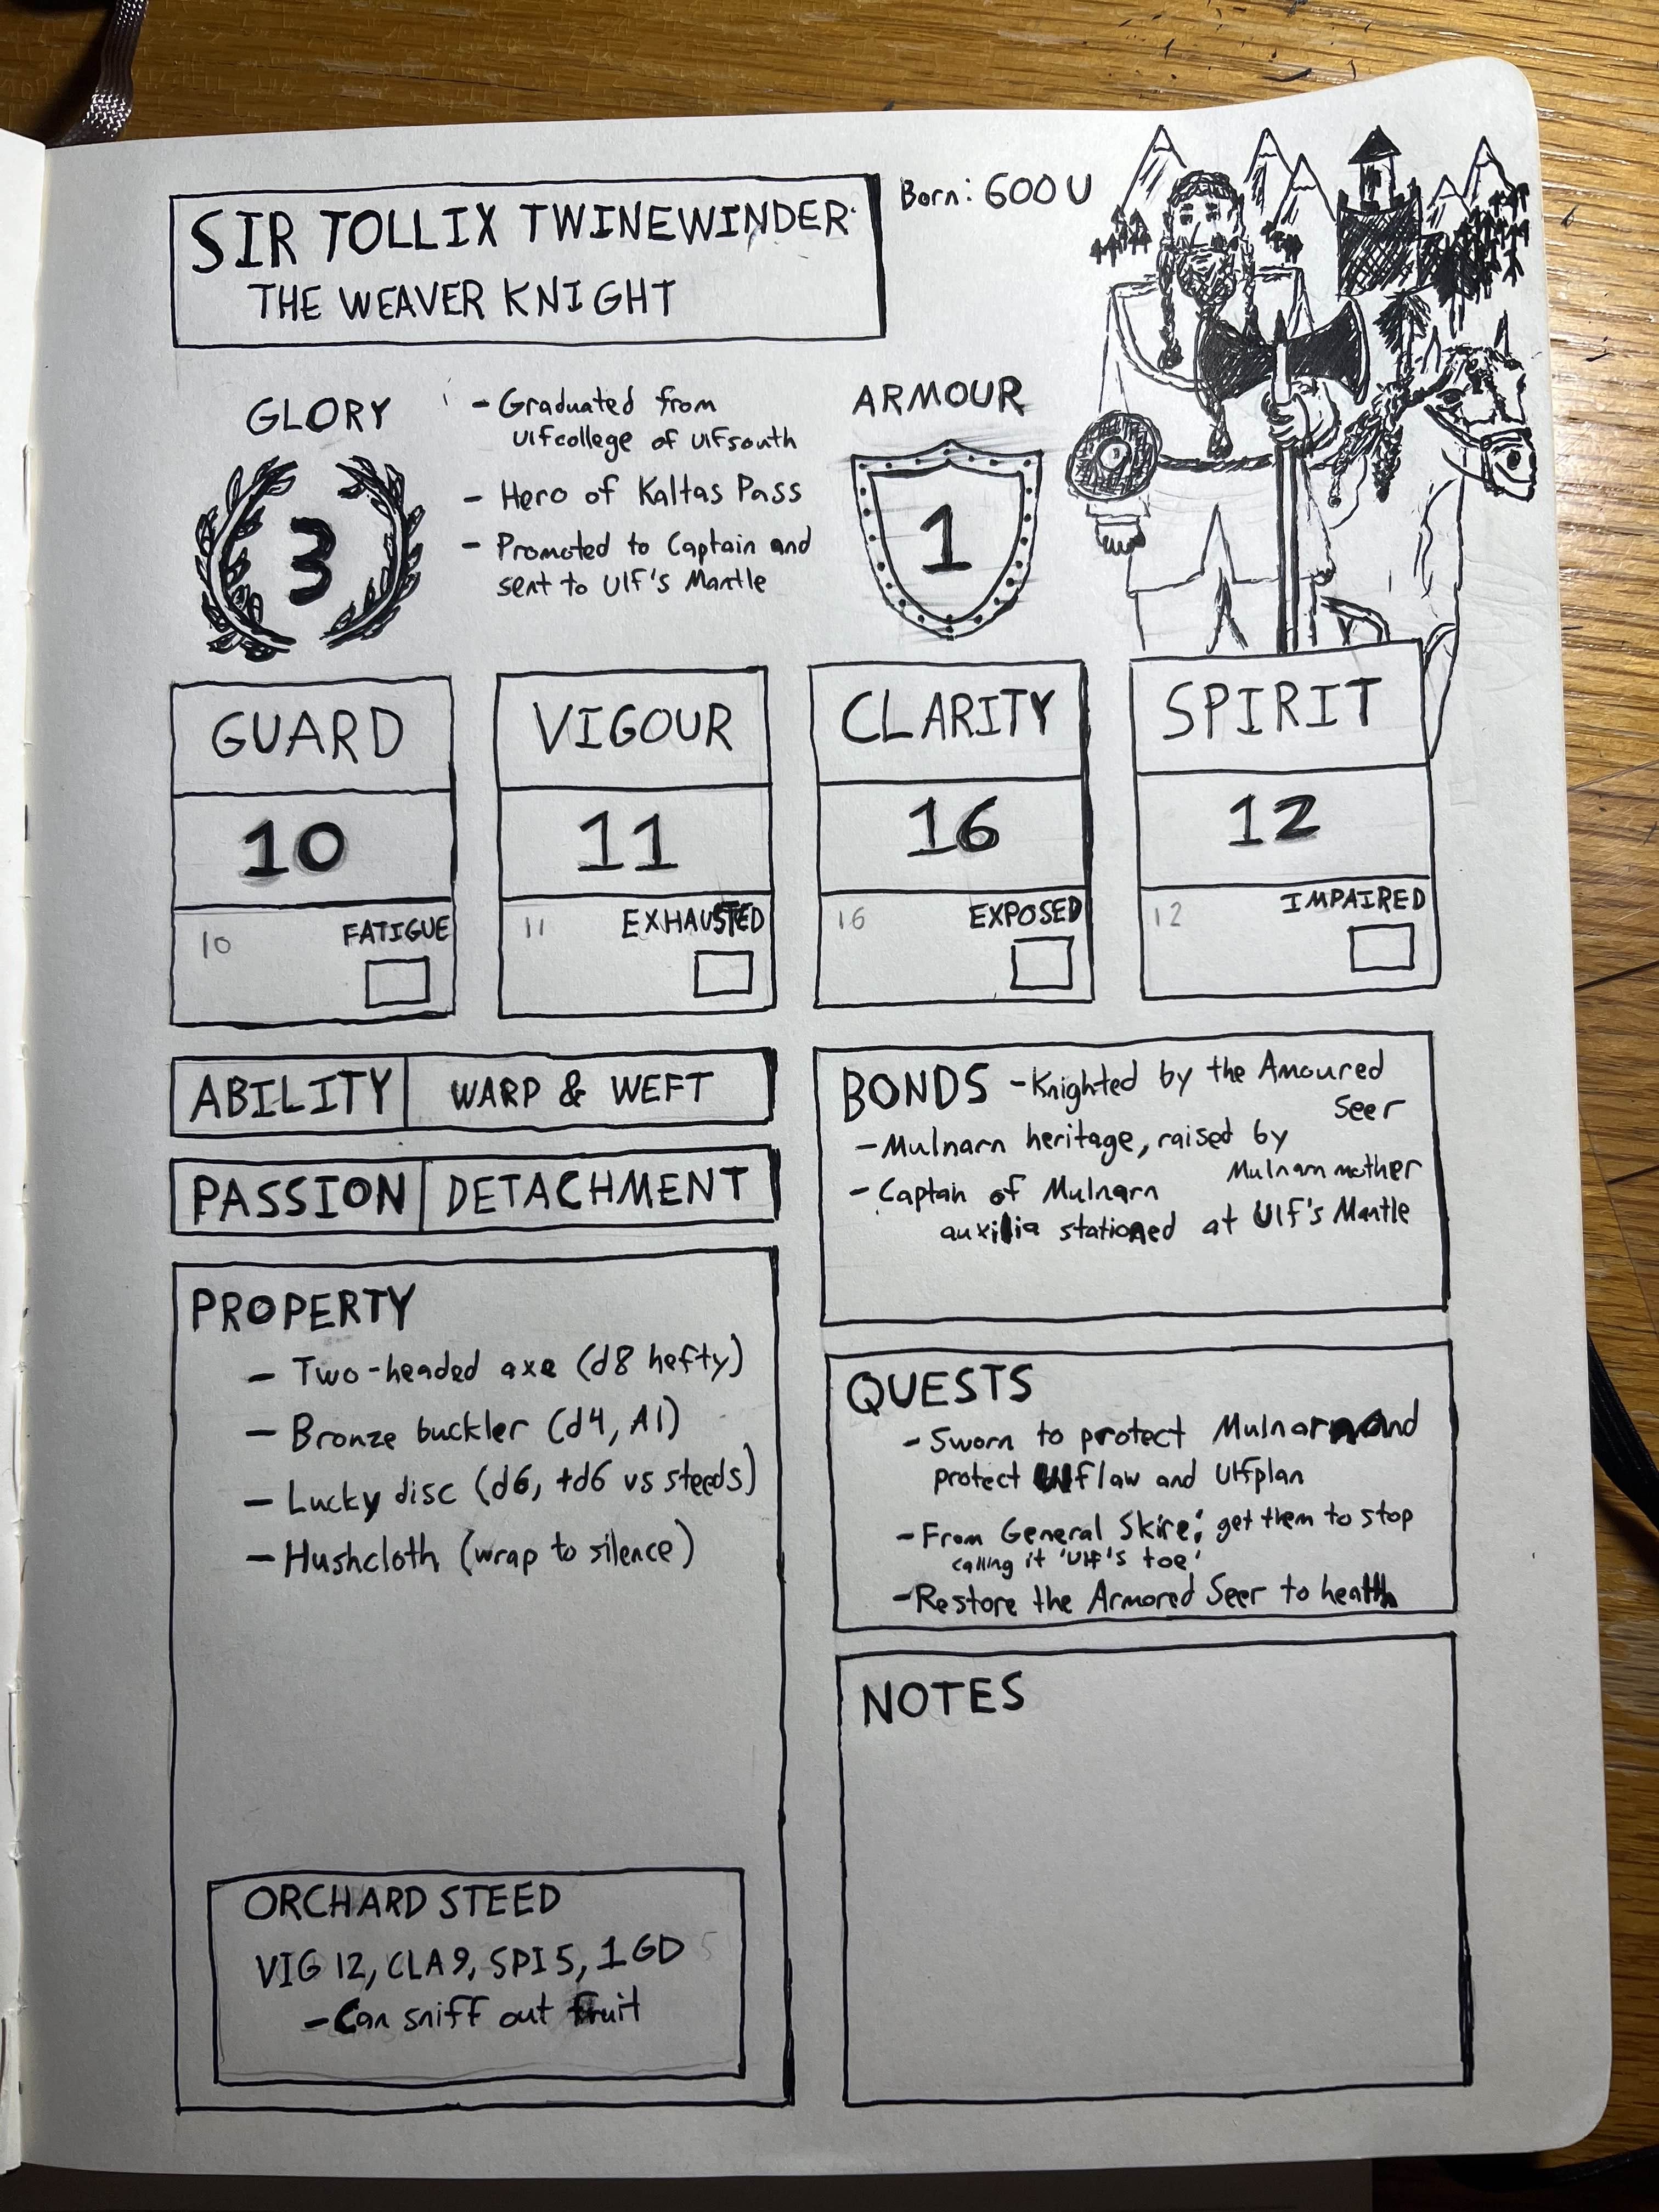 SIR TOLLIX TWINEWINDER
THE WEAVER KNIGHT
Born: 600 U
GLORY
3
- Graduated from
Ulfcollege of Ulfsouth
- Hero of Kaltas Pass
- Promoted to Captain and
sent to Ulf's Mantle
ARMOUR
1
GUARD
10
10 FATIGUE
VIGOUR
11
11 EXHAUSTED
CLARITY
16
16 EXPOSED
SPIRIT
12
12 IMPAIRED
ABILITY WARP & WEFT
PASSION DETACHMENT
PROPERTY
- Two-headed axe (d8 hefty)
- Bronze buckler (d4, A1)
- Lucky disc (d6, +d6 vs steeds)
- Hushcloth (wrap to silence)
ORCHARD STEED
VIG 12, CLA 9, SPI 5, 1 GD 5
- Can sniff out fruit
BONDS - Knighted by the Amoured
Seer
- Mulnarn heritage, raised by
Mulnarn mother
- Captain of Mulnarn
auxilia stationed at Ulf's Mantle
QUESTS
- Sworn to protect Mulnarn and
protect Ulflaw and Ulfplan
- From General Skire: get them to stop
calling it 'Ulf's toe'
- Restore the Armored Seer to health
NOTES